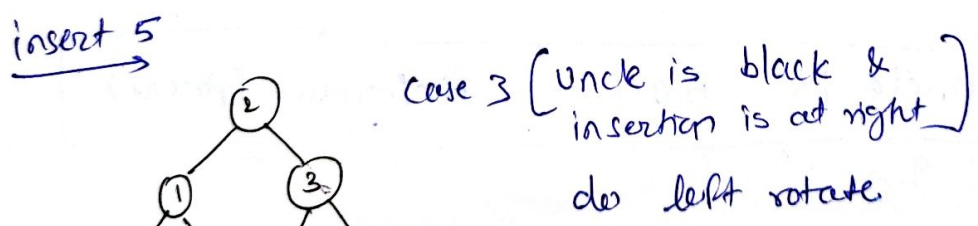 insert 5
case 3 [uncle is black &
insertion is at right]
do left rotate
2
1 3